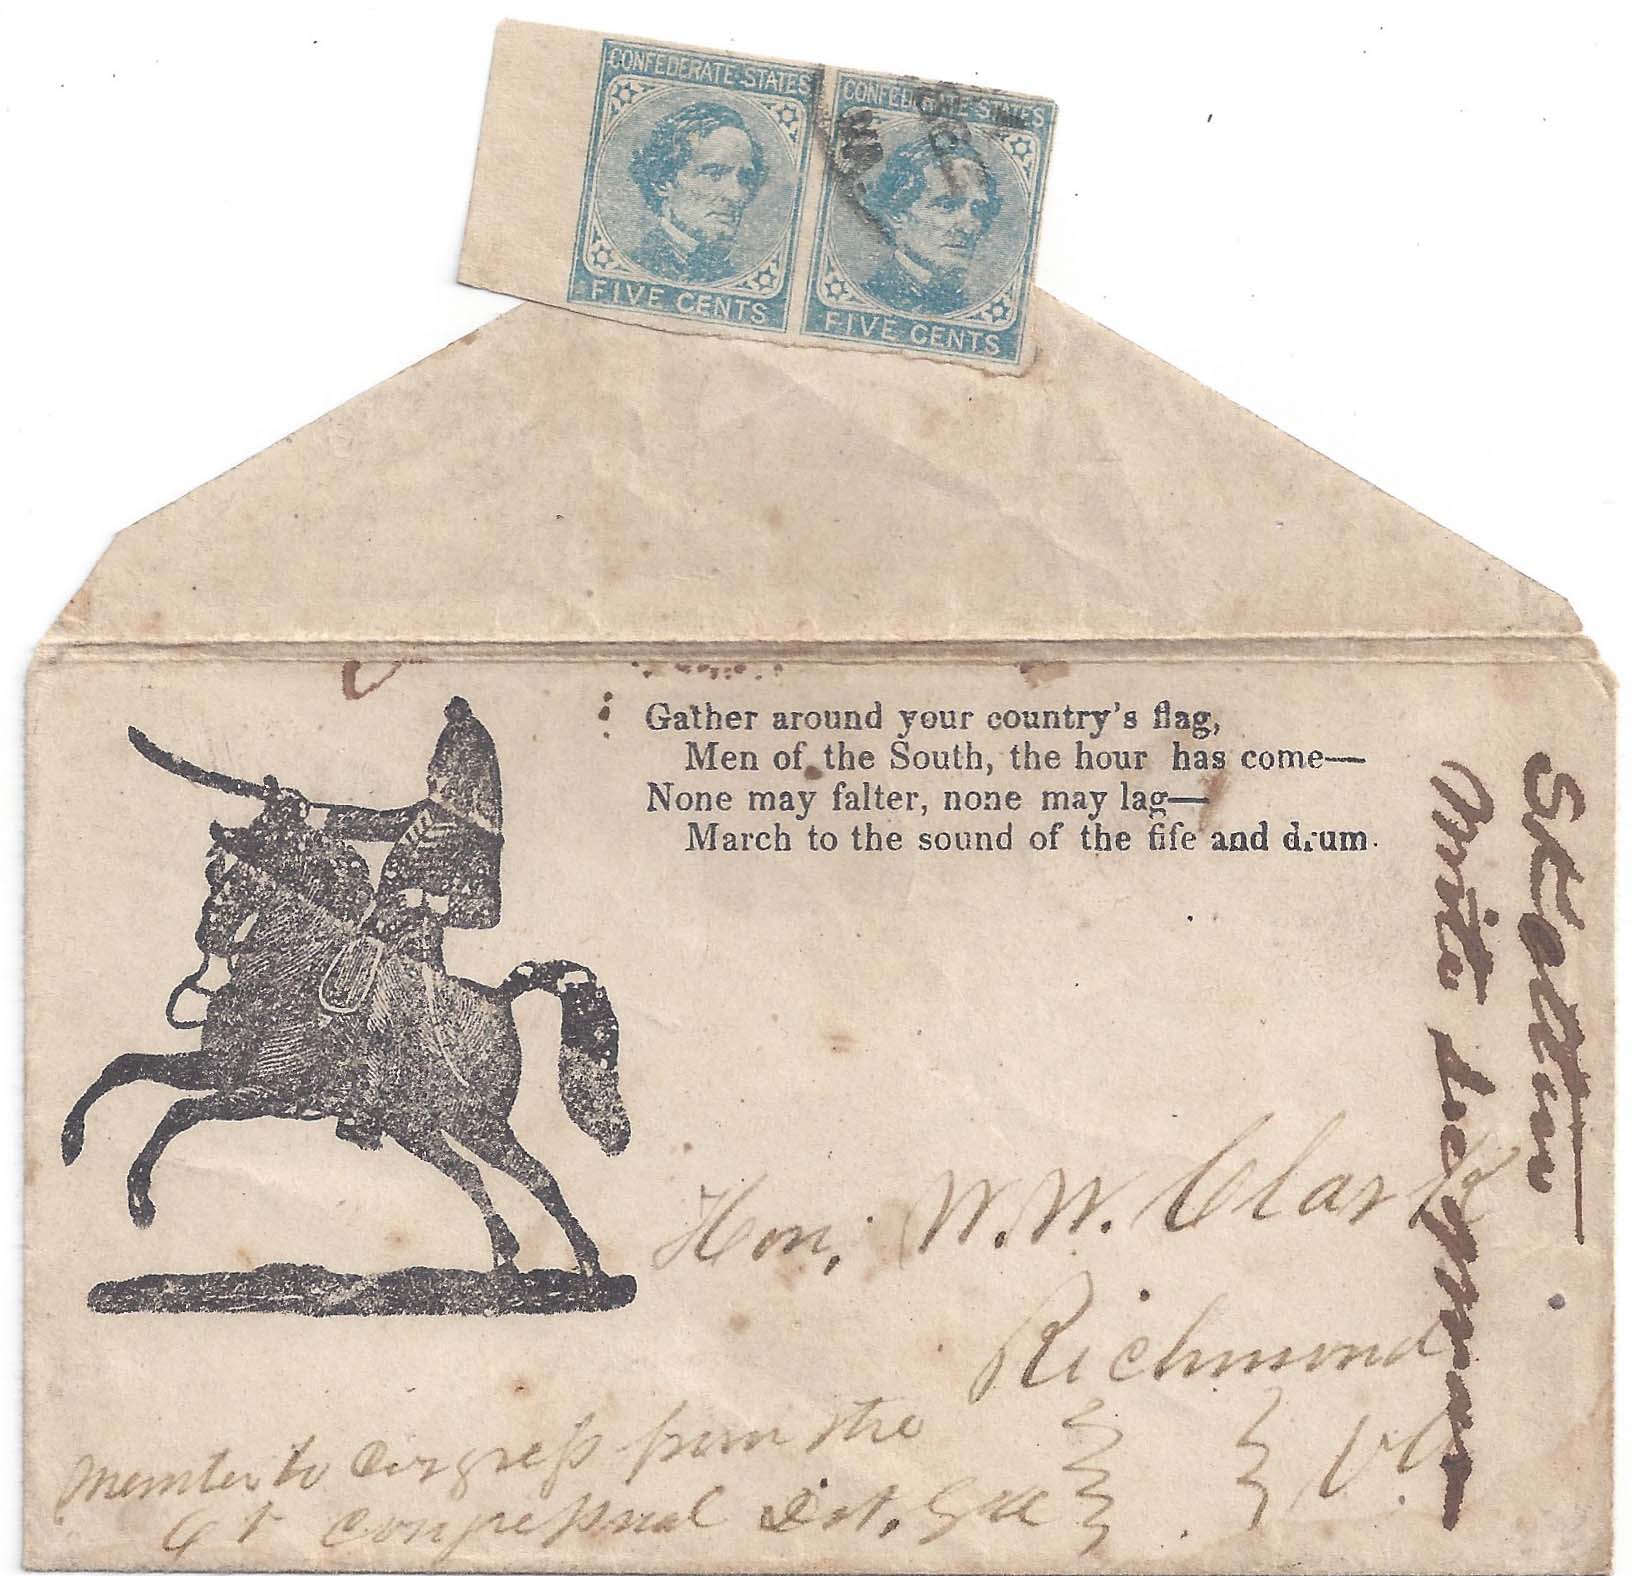 CONFEDERATE STATES
FIVE CENTS
CONFEDERATE STATES
FIVE CENTS
Gather around your country's flag,
Men of the South, the hour has come—
None may falter, none may lag—
March to the sound of the fife and drum.
Hon. W. W. Clark
Richmond
Va
Member to Congress from the
6t Congressnal Dist. Ga